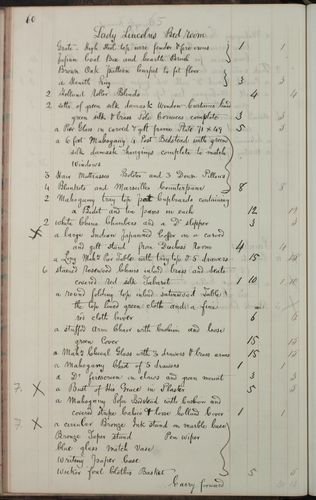 60
Lady Lincolns Bed room
Grate High Steel top wire fender & fire irons 1 1
Japan Coal Box and hearth Brush
Brown Oak pattern Carpet to fit floor
a Hearth Rug 3 3
2 Holland Roller Blinds 4 4
2 setts of green silk damask Window Curtains
green silk & brass Pole Cornices complete 3 3
a Pier Glass in carved & gilt frame Plate 71 x 49 5 3
a 6 foot Mahogany 4 Post Bedstead with green
silk damask hangings complete to match
Windows
3 Hair Mattresses Bolster and 3 Down Pillows
4 Blankets and Marseilles Counterpane 8 5
2 Mahogany tray top Cupboards containing
a Bidet and in each 12
2 white China Chambers and a Do slipper 3 3
X a large Indian Japanned Coffer on a carved
and gilt stand from Duchess Room 4 4
a Long Mahy Table with tray top & 5 drawers 15
6 stained Rosewood Chairs inlaid brass and Seats
covered red silk Taburet 1 10
a round folding top inlaid satinwood Table
the top lined green cloth and a fine
red cloth cover 6
a stuffed Arm Chair with Cushion and loose
green Cover 15 15
a Mahy Cheval Glass with 2 drawers & brass arms 15 15
a Mahogany Chest of 5 drawers 1 1
a Do firescreen on claws and green mount 3 3
7. X a Bust of His Grace in Plaster 5 5
a Mahogany Sofa Bedstead with Cushion and
covered stripe Calico & loose holland Cover 1
7. X a circular Bronze Ink stand on marble base
Bronze Taper stand Pen wiper
blue glass match Vase
Writing Paper Case
Wicker foul Clothes Basket 5
Carry forward